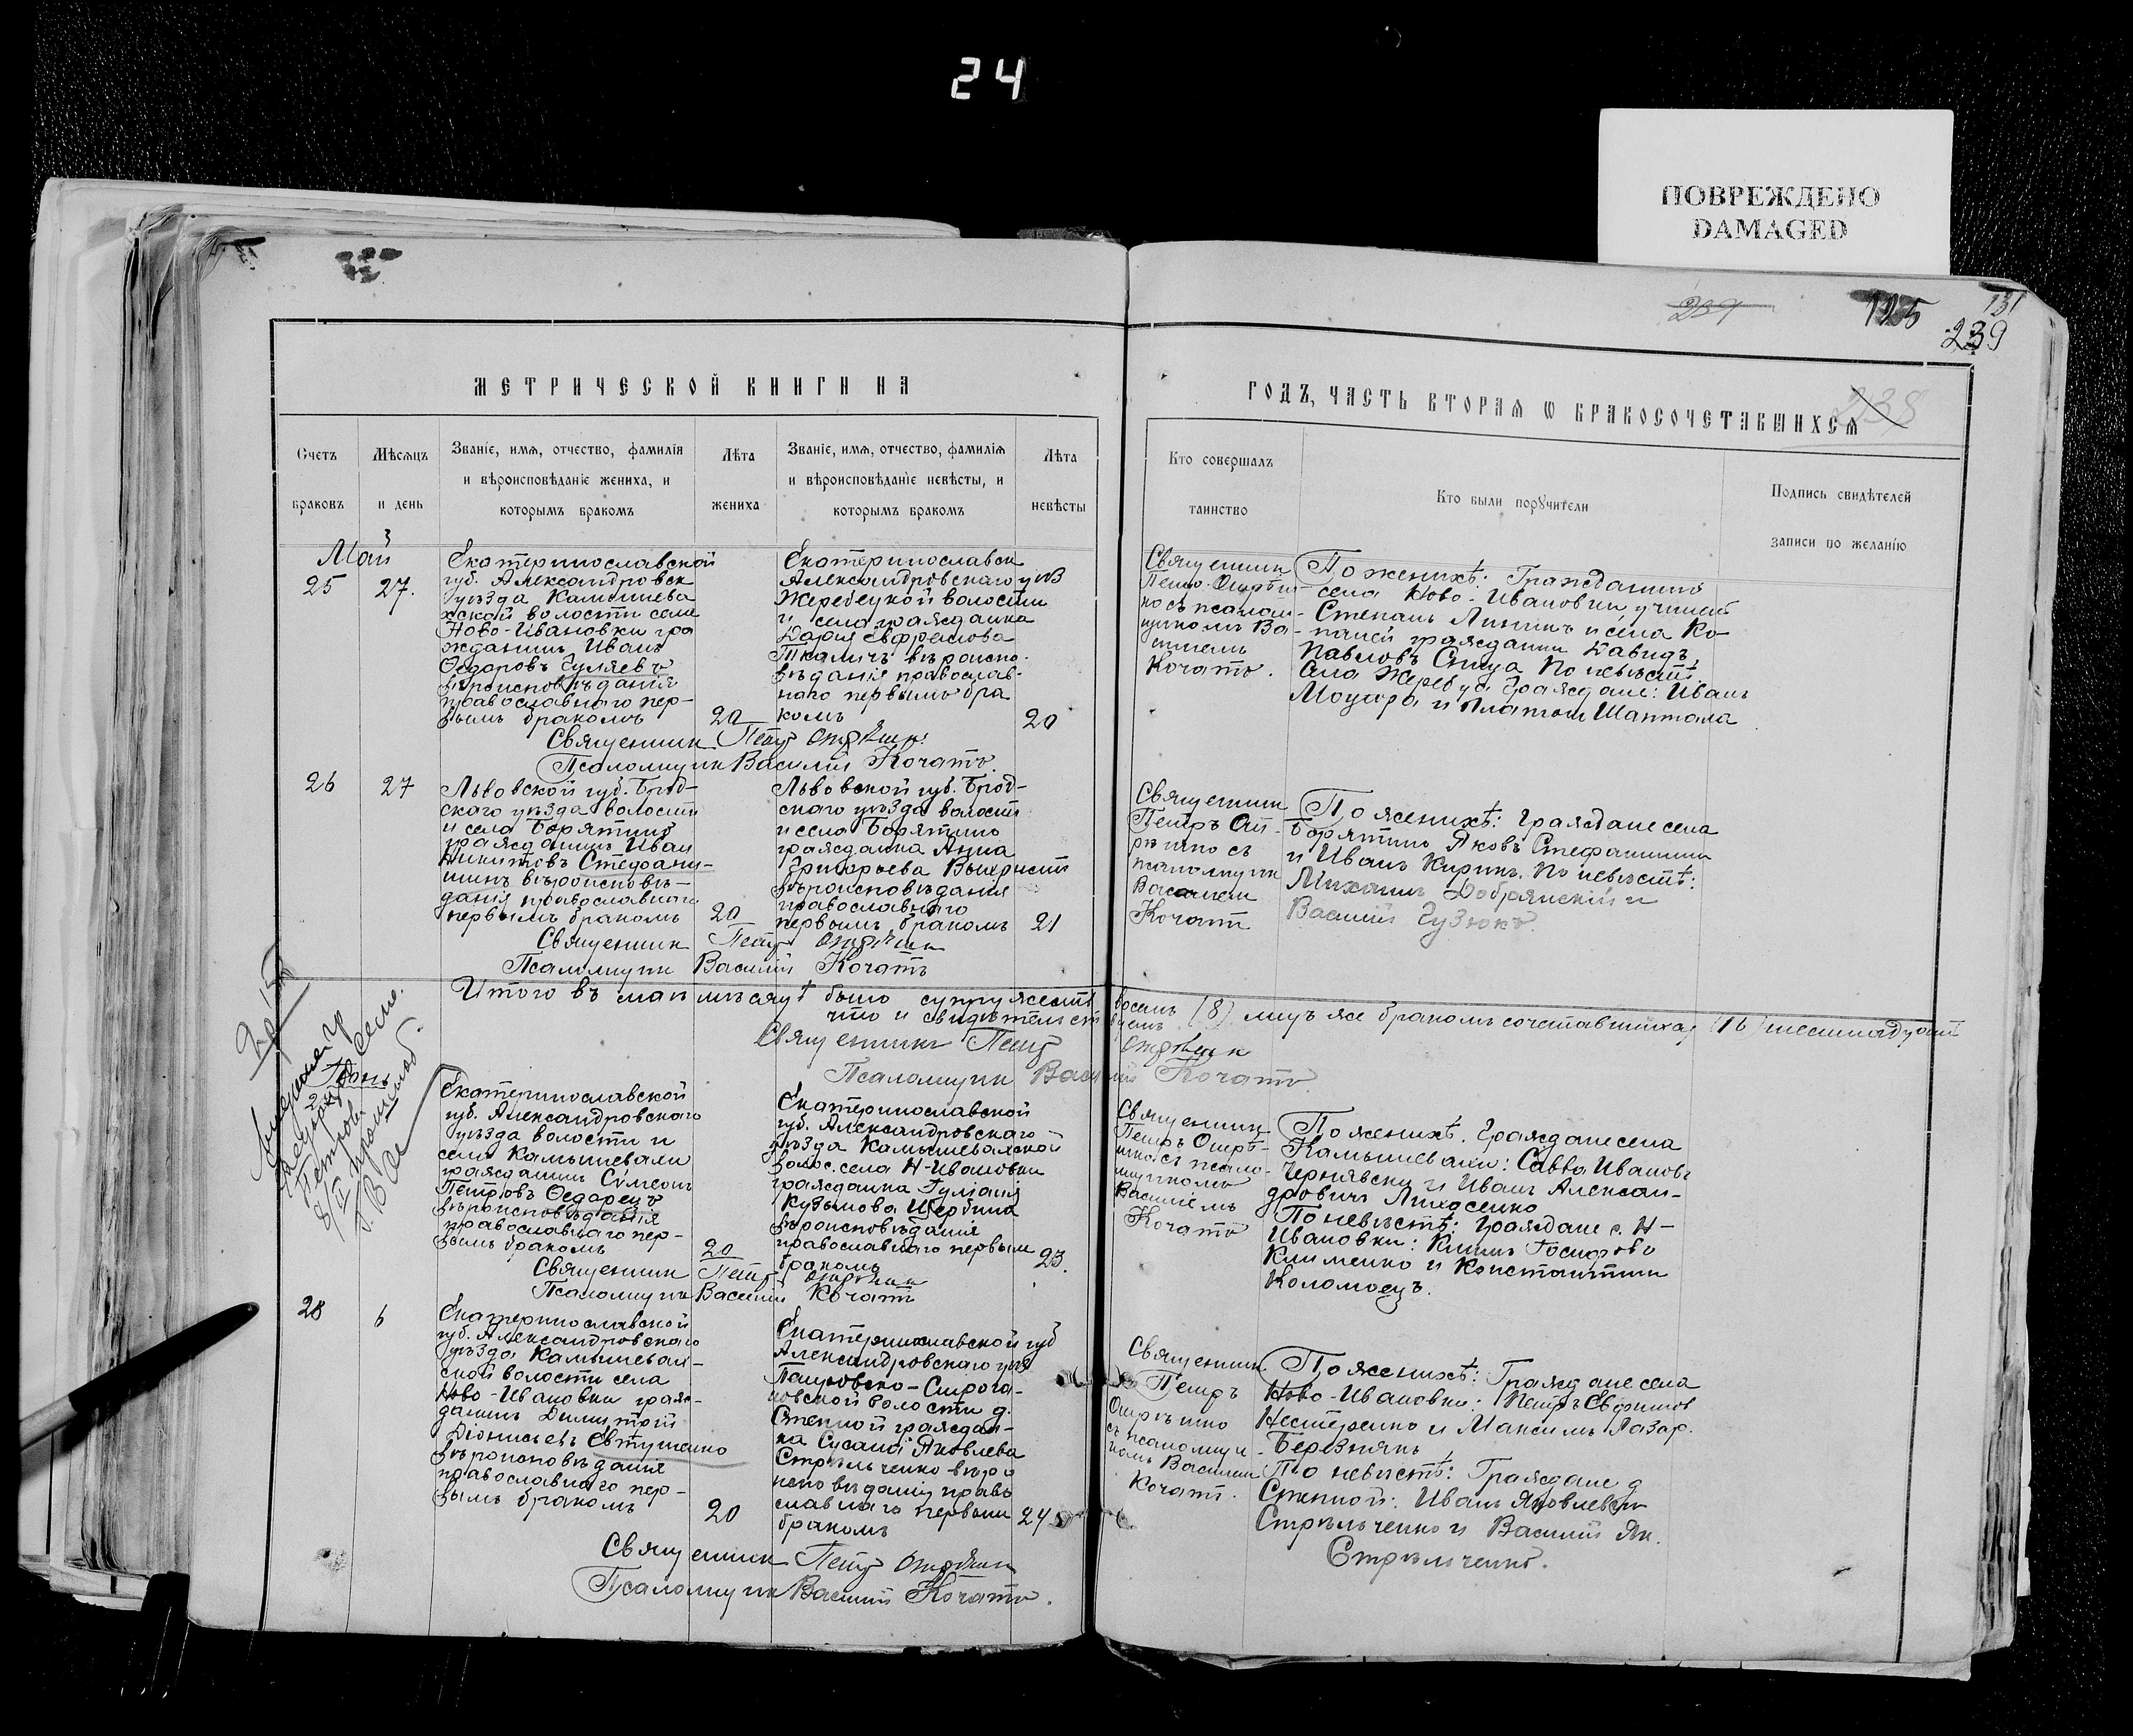 24
ПОВРЕЖДЕНО
DAMAGED
239
125
131
239
238
МЕТРИЧЕСКОЙ КНИГИ НА
ГОДЪ, ЧАСТЬ ВТОРАЯ Ѡ БРАКОСОЧЕТАВШИХСЯ
Счетъ
браковъ
Мѣсяцъ
и день
Званіе, имя, отчество, фамилія
и вѣроисповѣданіе жениха, и
которымъ бракомъ
Лѣта
жениха
Званіе, имя, отчество, фамилія
и вѣроисповѣданіе невѣсты, и
которымъ бракомъ
Лѣта
невѣсты
Кто совершалъ
таинство
Кто были порꙋчители
Подпись свидѣтелей
записи по желанію
Май
25
27.
Екатеринославской
губ. Александровск
уѣзда Камышева
хской волости села
Ново-Ивановки гра
жданинъ Иванъ
Ѳедоровъ Гуляевъ
вѣроисповѣданія
православнаго пер-
вымъ бракомъ
20
Екатеринославск
Александровскаго уѣз
Жеребецкой волости
и села гражданка
Дарія Евфремова
Ткаличъ вѣроиспо-
вѣданія православ-
наго первымъ бра
комъ
20
Священник
но съ псалом-
щикомъ Ва-
силіем
Кочатъ.
По женихѣ: Граждане
села Ново-Ивановки учитель
Степанъ и села Ко-
паней гражданин Давидъ
Павловъ По невѣстѣ
села Жеребца Граждане: Иванъ
Моцара и Платон Шаптала
Священник Петр
Псаломщик Василій Кочатъ.
26
27
Львовской губ. Брод-
скаго уѣзда волости
и села Борятино
гражданинъ Иван
Никитовъ Стефани-
шинъ вѣроисповѣ-
данія православнаго
первымъ бракомъ
20
Львовской губ. Брод-
скаго уѣзда волости
и села Борятино
гражданка Анна
Григорьева
вѣроисповѣданія
православнаго
первымъ бракомъ
21
Священник
Петръ
съ
псаломщик
Василіем
Кочатъ
По женихѣ: Граждане села
Борятино Яковъ Стефанишин
и Иванъ Киринъ. По невѣстѣ:
Михаилъ Добрянскій и
Василій Гузюкъ.
Священник Петр
Псаломщик Василій Кочатъ
Итого въ маи мѣсяцѣ было супружеств восемь (8) лицъ же бракомъ сочетавшихся (16) шестнадцать
что и свидѣтельст
Священникъ Петр
Псаломщик Василій Кочатъ.
Іюнь
Екатеринославской
губ. Александровскаго
уѣзда волости и
села Камышевахи
гражданинъ Симеон
Петровъ Ѳедорецъ
вѣроисповѣданія
православнаго пер-
вымъ бракомъ
20
Екатеринославской
губ. Александровскаго
уѣзда Камышевахской
волос. села Н-Ивановки
гражданка Іуліанія
Кузьмова Щербина
вѣроисповѣданія
православнаго первым
бракомъ
23.
Священник
съ псалом-
щикомъ
Василіемъ
Кочатъ
По женихѣ. Граждане села
Камышевахи: Савва Ивановъ
Чернявски и Иванъ Алексан-
дровичъ
По невѣстѣ: Граждане с. Н-
Ивановки: Климъ
Клименко и Константин
Коломоецъ.
Священник Петр
Псаломщик Василій Кочатъ
28
6
Екатеринославской
губ. Александровскаго
уѣзда Камышевах-
ской волости села
Ново-Ивановки граж-
данинъ Димитрій
Діонисьевъ Евтушенко
вѣроисповѣданія
православнаго пер-
вымъ бракомъ
20
Екатеринославской губ
Александровскаго уѣз
новской волости д.
Степной граждан-
ка Сусанна Яковлева
Стрѣльченко вѣро
исповѣданія право
славнаго первым
бракомъ
24
Священник
Петръ
съ псаломщи
комъ Василіем
Кочатъ.
По женихѣ: Граждане села
Ново-Ивановки: Петръ Евфимов
Нестеренко и Максимъ Лазар.
Березнякъ
По невѣстѣ: Граждане д
Степной: Иванъ Яковлевъ
Стрѣльченко и Василій Як.
Стрѣльченко.
Священник Петр
Псаломщик Василій Кочатъ.